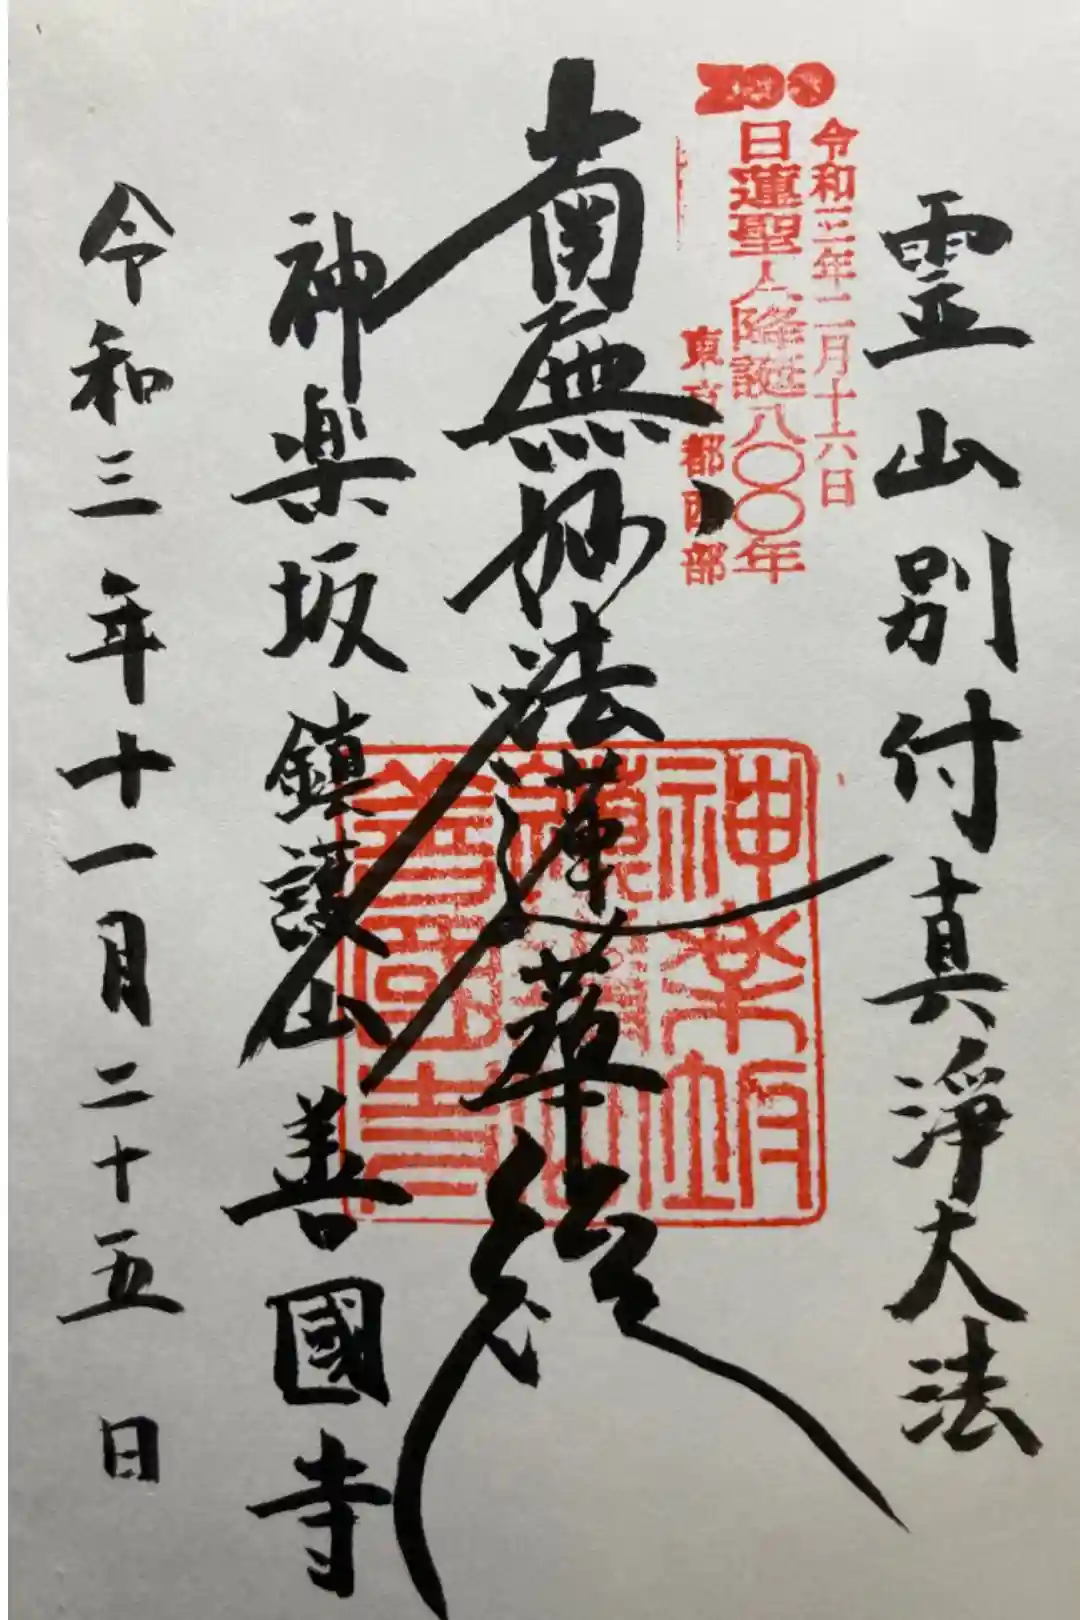 霊山別付真浄大法
令和三年二月十六日
日蓮聖人降誕八〇〇年
東京都西部
南無妙法蓮華経
神楽坂
鎮護山
善國寺
神楽坂鎮護山善國寺
令和三年十一月二十五日